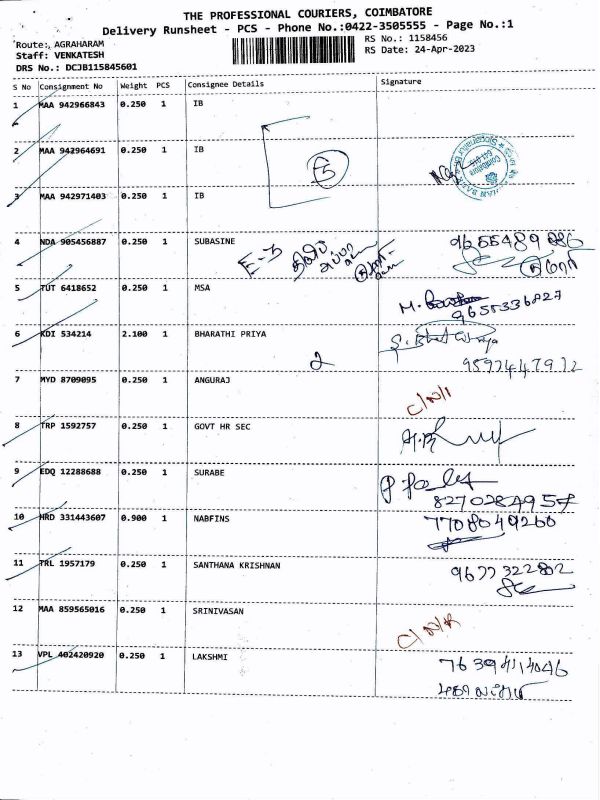 THE PROFESSIONAL COURIERS, COIMBATORE
Delivery Runsheet - PCS - Phone No.:0422-3505555 - Page No.:1
Route:, AGRAHARAM
Staff: VENKATESH
DRS No.: DCJB115845601
RS No.: 1158456
RS Date: 24-Apr-2023
S No Consignment No Weight PCS Consignee Details Signature
1 MAA 942966843 0.250 1 IB
2 MAA 942964691 0.250 1 IB
3 MAA 942971403 0.250 1 IB
4 NDA 905456887 0.250 1 SUBASINE 9655489086
5 TUT 6418652 0.250 1 MSA 9655336827
6 KDI 534214 2.100 1 BHARATHI PRIYA 2
9597447912
7 MYD 8709095 0.250 1 ANGURAJ C/N/I
8 TRP 1592757 0.250 1 GOVT HR SEC
9 EDQ 12288688 0.250 1 SURABE
8270284957
10 HRD 331443607 0.900 1 NABFINS 7708049260
11 TRL 1957179 0.250 1 SANTHANA KRISHNAN 9677322802
12 MAA 859565016 0.250 1 SRINIVASAN C/N/R
13 VPL 402420920 0.250 1 LAKSHMI 7639414046